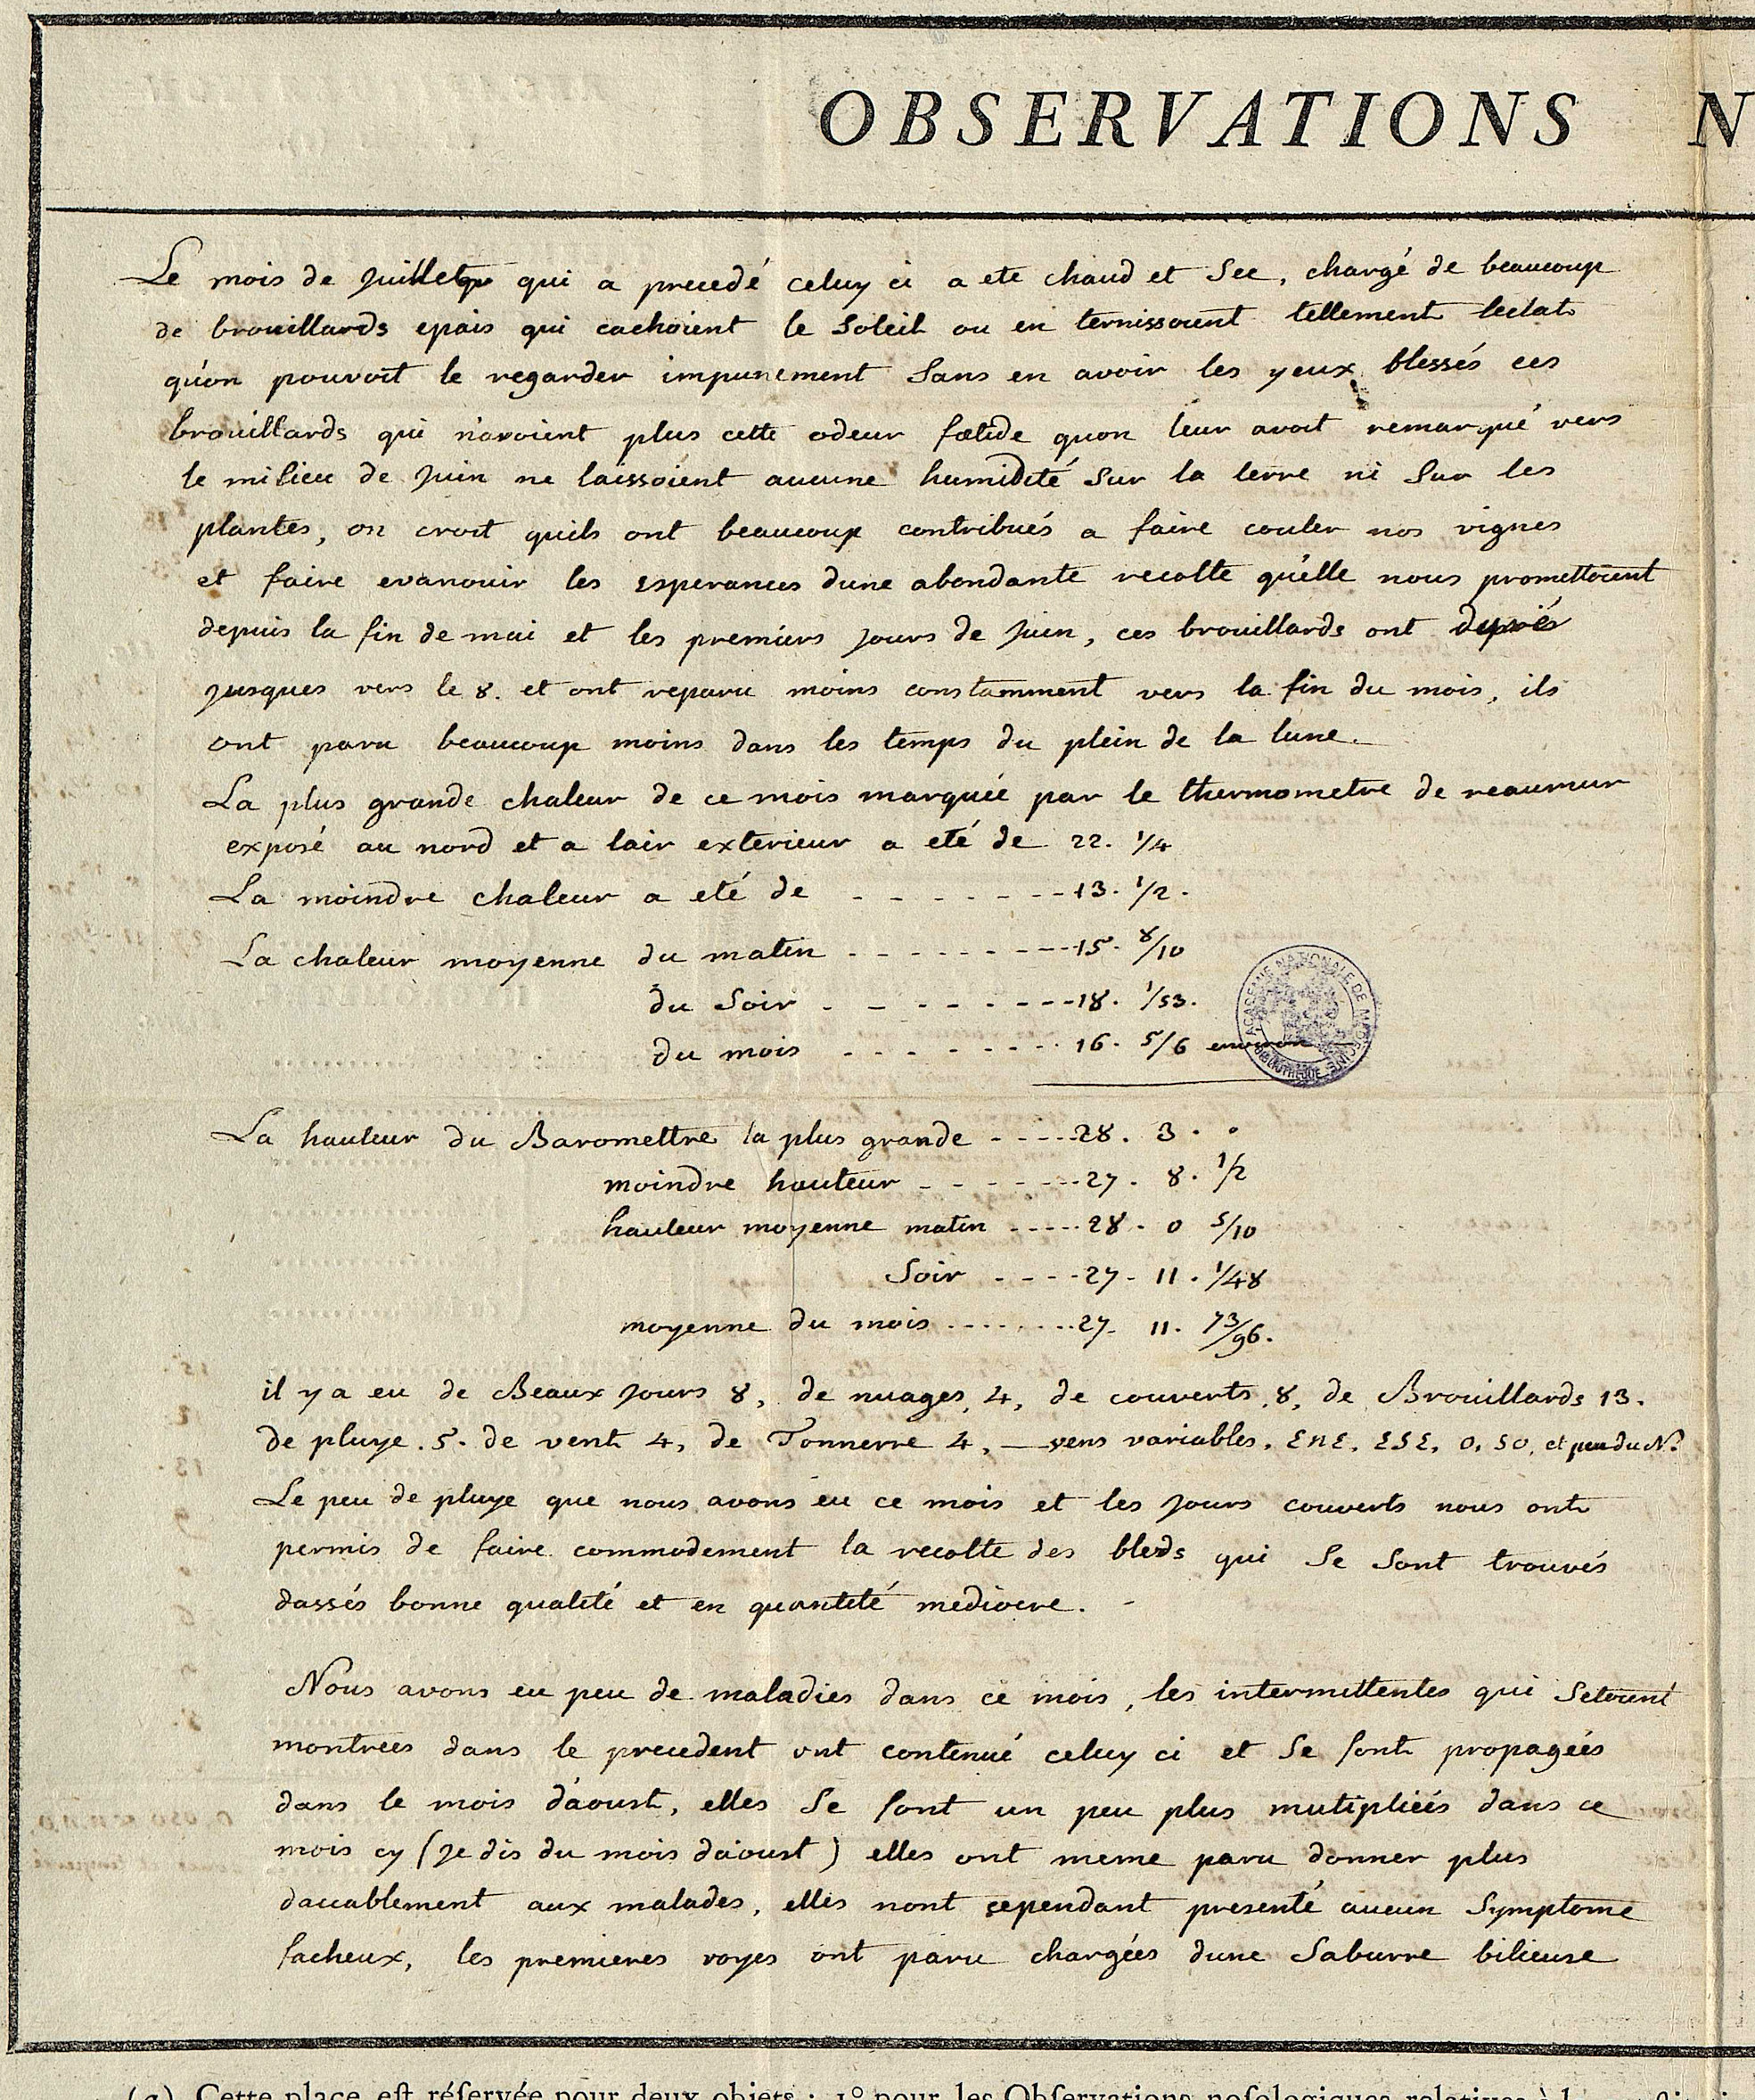 OBSERVATIONS N
Le mois de Juillet qui a precedé celuy ci a ete chaud et sec, chargé de beaucoup
de brouillards epais qui cachoient le soleil ou en ternissoient tellement leclat
qu'on pouvoit le regarder impunement sans en avoir les yeux blessés ces
brouillards qui n'avoient plus cette odeur fœtide quon leur avoit remarqué vers
le milieu de Juin ne laissoient aucune humidité sur la terre ni sur les
plantes, on croit quils ont beaucoup contribués a faire couler nos vignes
et faire evanouir les esperances dune abondante recolte qu'elle nous promettoient
depuis la fin de mai et les premiers jours de Juin, ces brouillards ont
jusques vers le 8. et ont reparu moins constamment vers la fin du mois, ils
ont paru beaucoup moins dans les temps du plein de la lune.
La plus grande chaleur de ce mois marquée par le thermometre de reaumur
exposé au nord et a lair exterieur a eté de 22. 1/4
La moindre chaleur a eté de - - - - - - - 13. 1/2.
La chaleur moyenne du matin - - - - - - - 15. 8/10
du soir - - - - - - - 18. 1/53.
du mois - - - - - - - 16. 5/6 environ
La hauteur du Baromettre la plus grande - - - - 28. 3. .
moindre hauteur - - - - - - 27. 8. 1/2
hauteur moyenne matin - - - - - 28. 0 5/10
Soir - - - - 27. 11. 1/48
moyenne du mois - - - - - - - 27. 11. 73/96.
il y a eu de Beaux jours 8, de nuages, 4, de couverts, 8, de Brouillards 13.
de pluye. 5. de vent 4, de Tonnerre 4, — vens variables. ENE. ESE. O. SO. et peu du N.
Le peu de pluye que nous avons eu ce mois et les jours couverts nous ont
permis de faire commodement la recolte des bleds qui se sont trouvés
dassés bonne qualité et en quantité mediocre. -
Nous avons eu peu de maladies dans ce mois, les intermittentes qui setoient
montrées dans le precedent ont continué celuy ci et se sont propagées
dans le mois d'aoust, elles se sont un peu plus mutipliées dans ce
mois cy (je dis du mois daoust) elles ont meme paru donner plus
daccablement aux malades, elles nont cependant presenté aucun symptome
facheux, les premieres voyes ont paru chargées dune saburre bilieuse
ACADEMIE NATIONALE DE MEDECINE BIBLIOTHEQUE
(a) Cette place est réservée pour deux objets : 1° pour les Observations nosologiques relatives à l